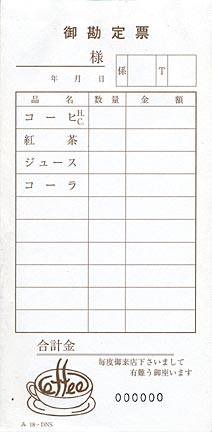 御勘定票
様
年 月 日 係 T
品 名 数 量 金 額
コーヒH.C.
紅 茶
ジュース
コーラ
合計金
毎度御来店下さいまして
有難う御座います
Coffee
000000
み 18-DNS